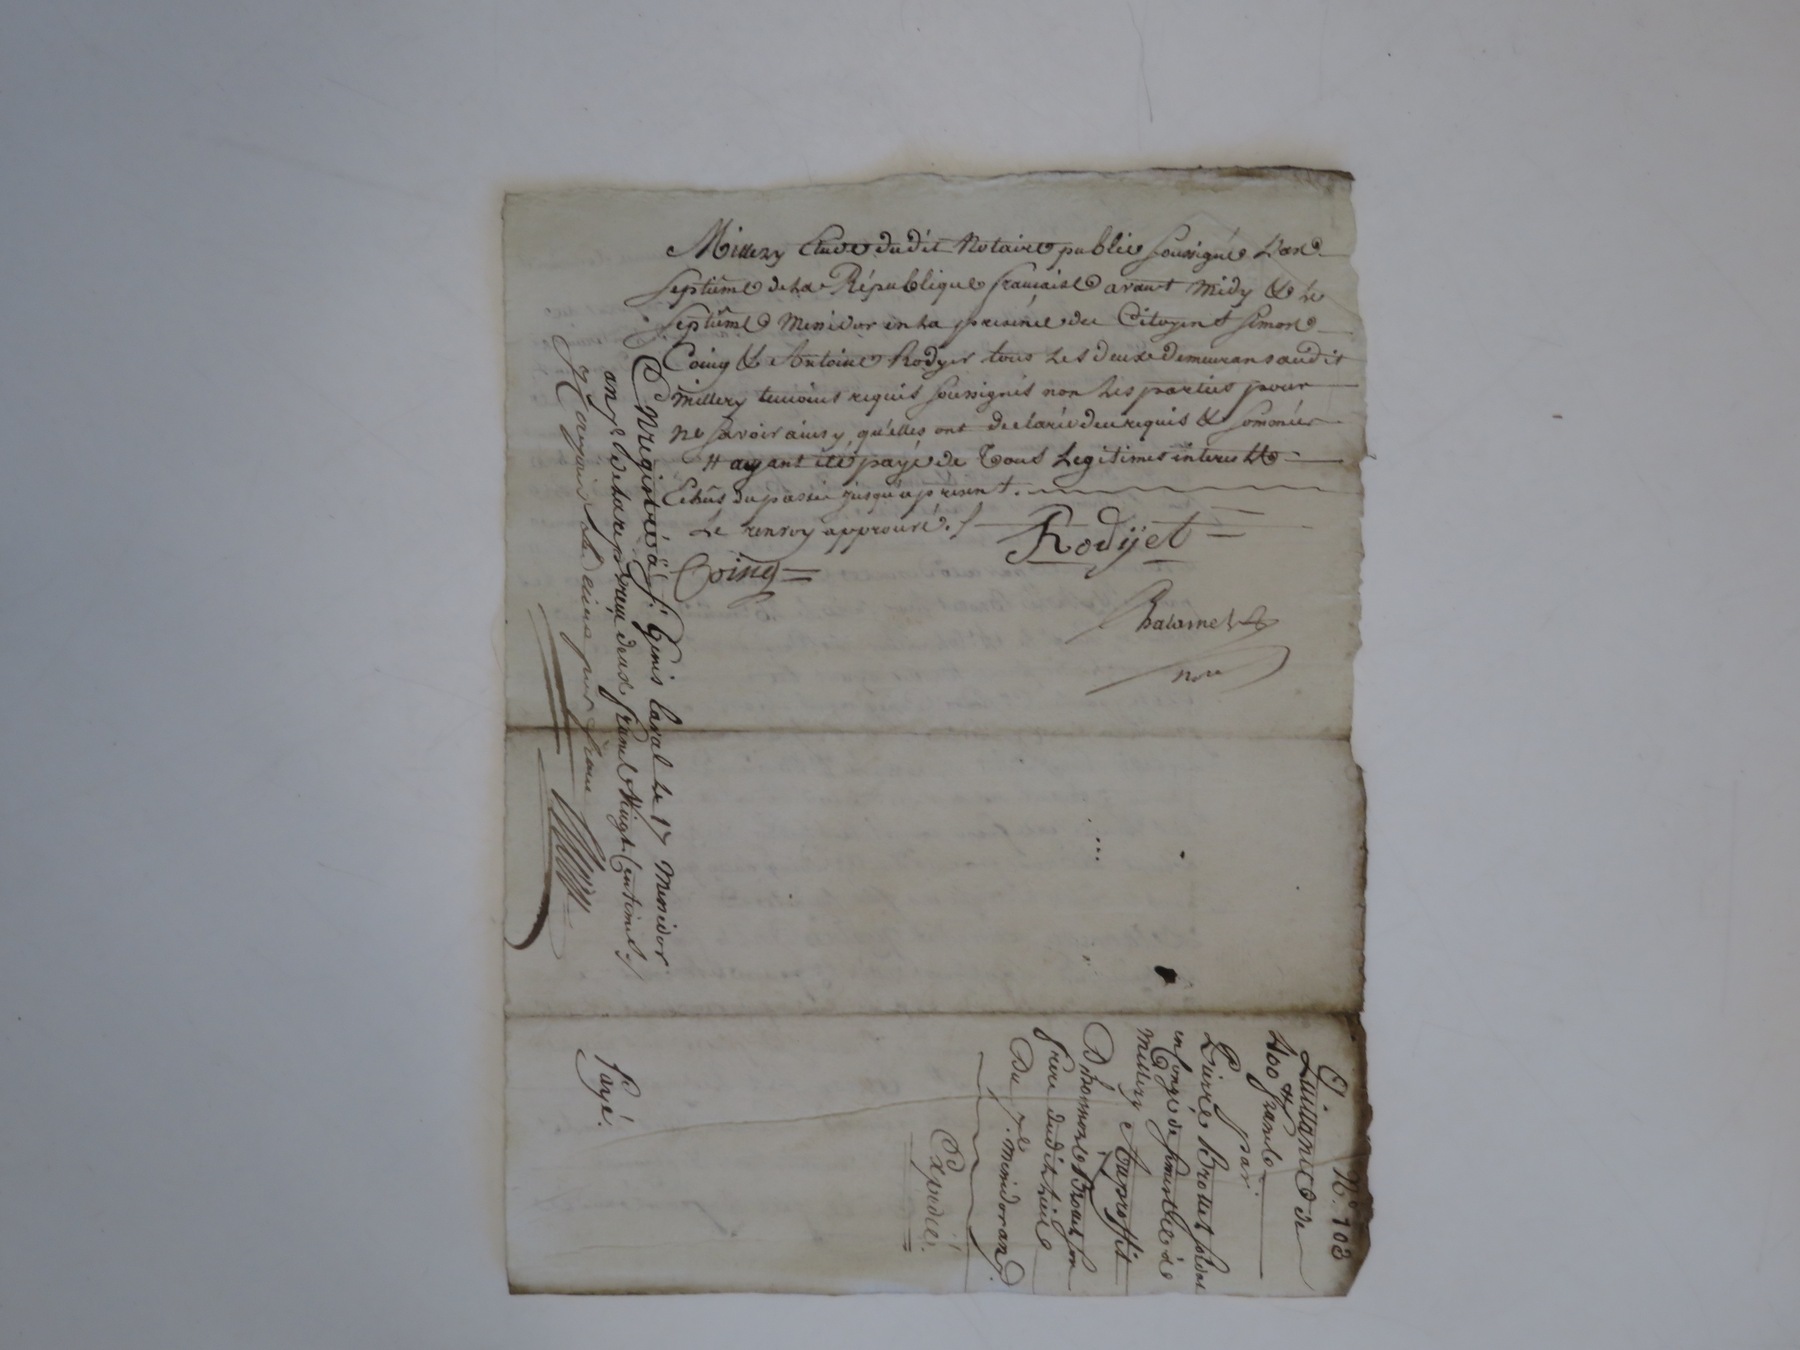 Millery Etude dudit Notaire public soussigné L'an
septieme de la République française avant midy & le
septieme Messidor en la presence des Citoyens Simon
Coing & Antoine Rodyet tous les deux demeurans audit
Millery temoins requis soussignés non les parties pour
ne savoir ainsy qu'elles ont declaré de ce requis & somméés
# ayant été payé de Tous Legitimes interests
Echus du passé jusqu'a present.
Le renvoy approuvé./
Rodyet
Coing
Chalamel
nore
Enregistré à S. Genis Laval Le 17 Messidor
an 7e de la rep. reçu deux francs Vingt Centimes
N° 103
Quittance de
400 francs
par
Pierre Brottet soldat
en congé de
Millery Au proffit
Brottet son
frere dudit Lieu
Du 7e Messidor an 7.
Expedié
Payé.